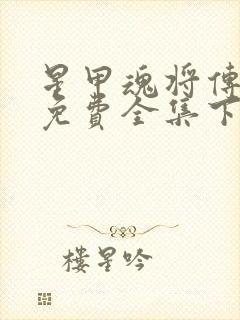 星甲魂将传
免费全集下
楼星吟